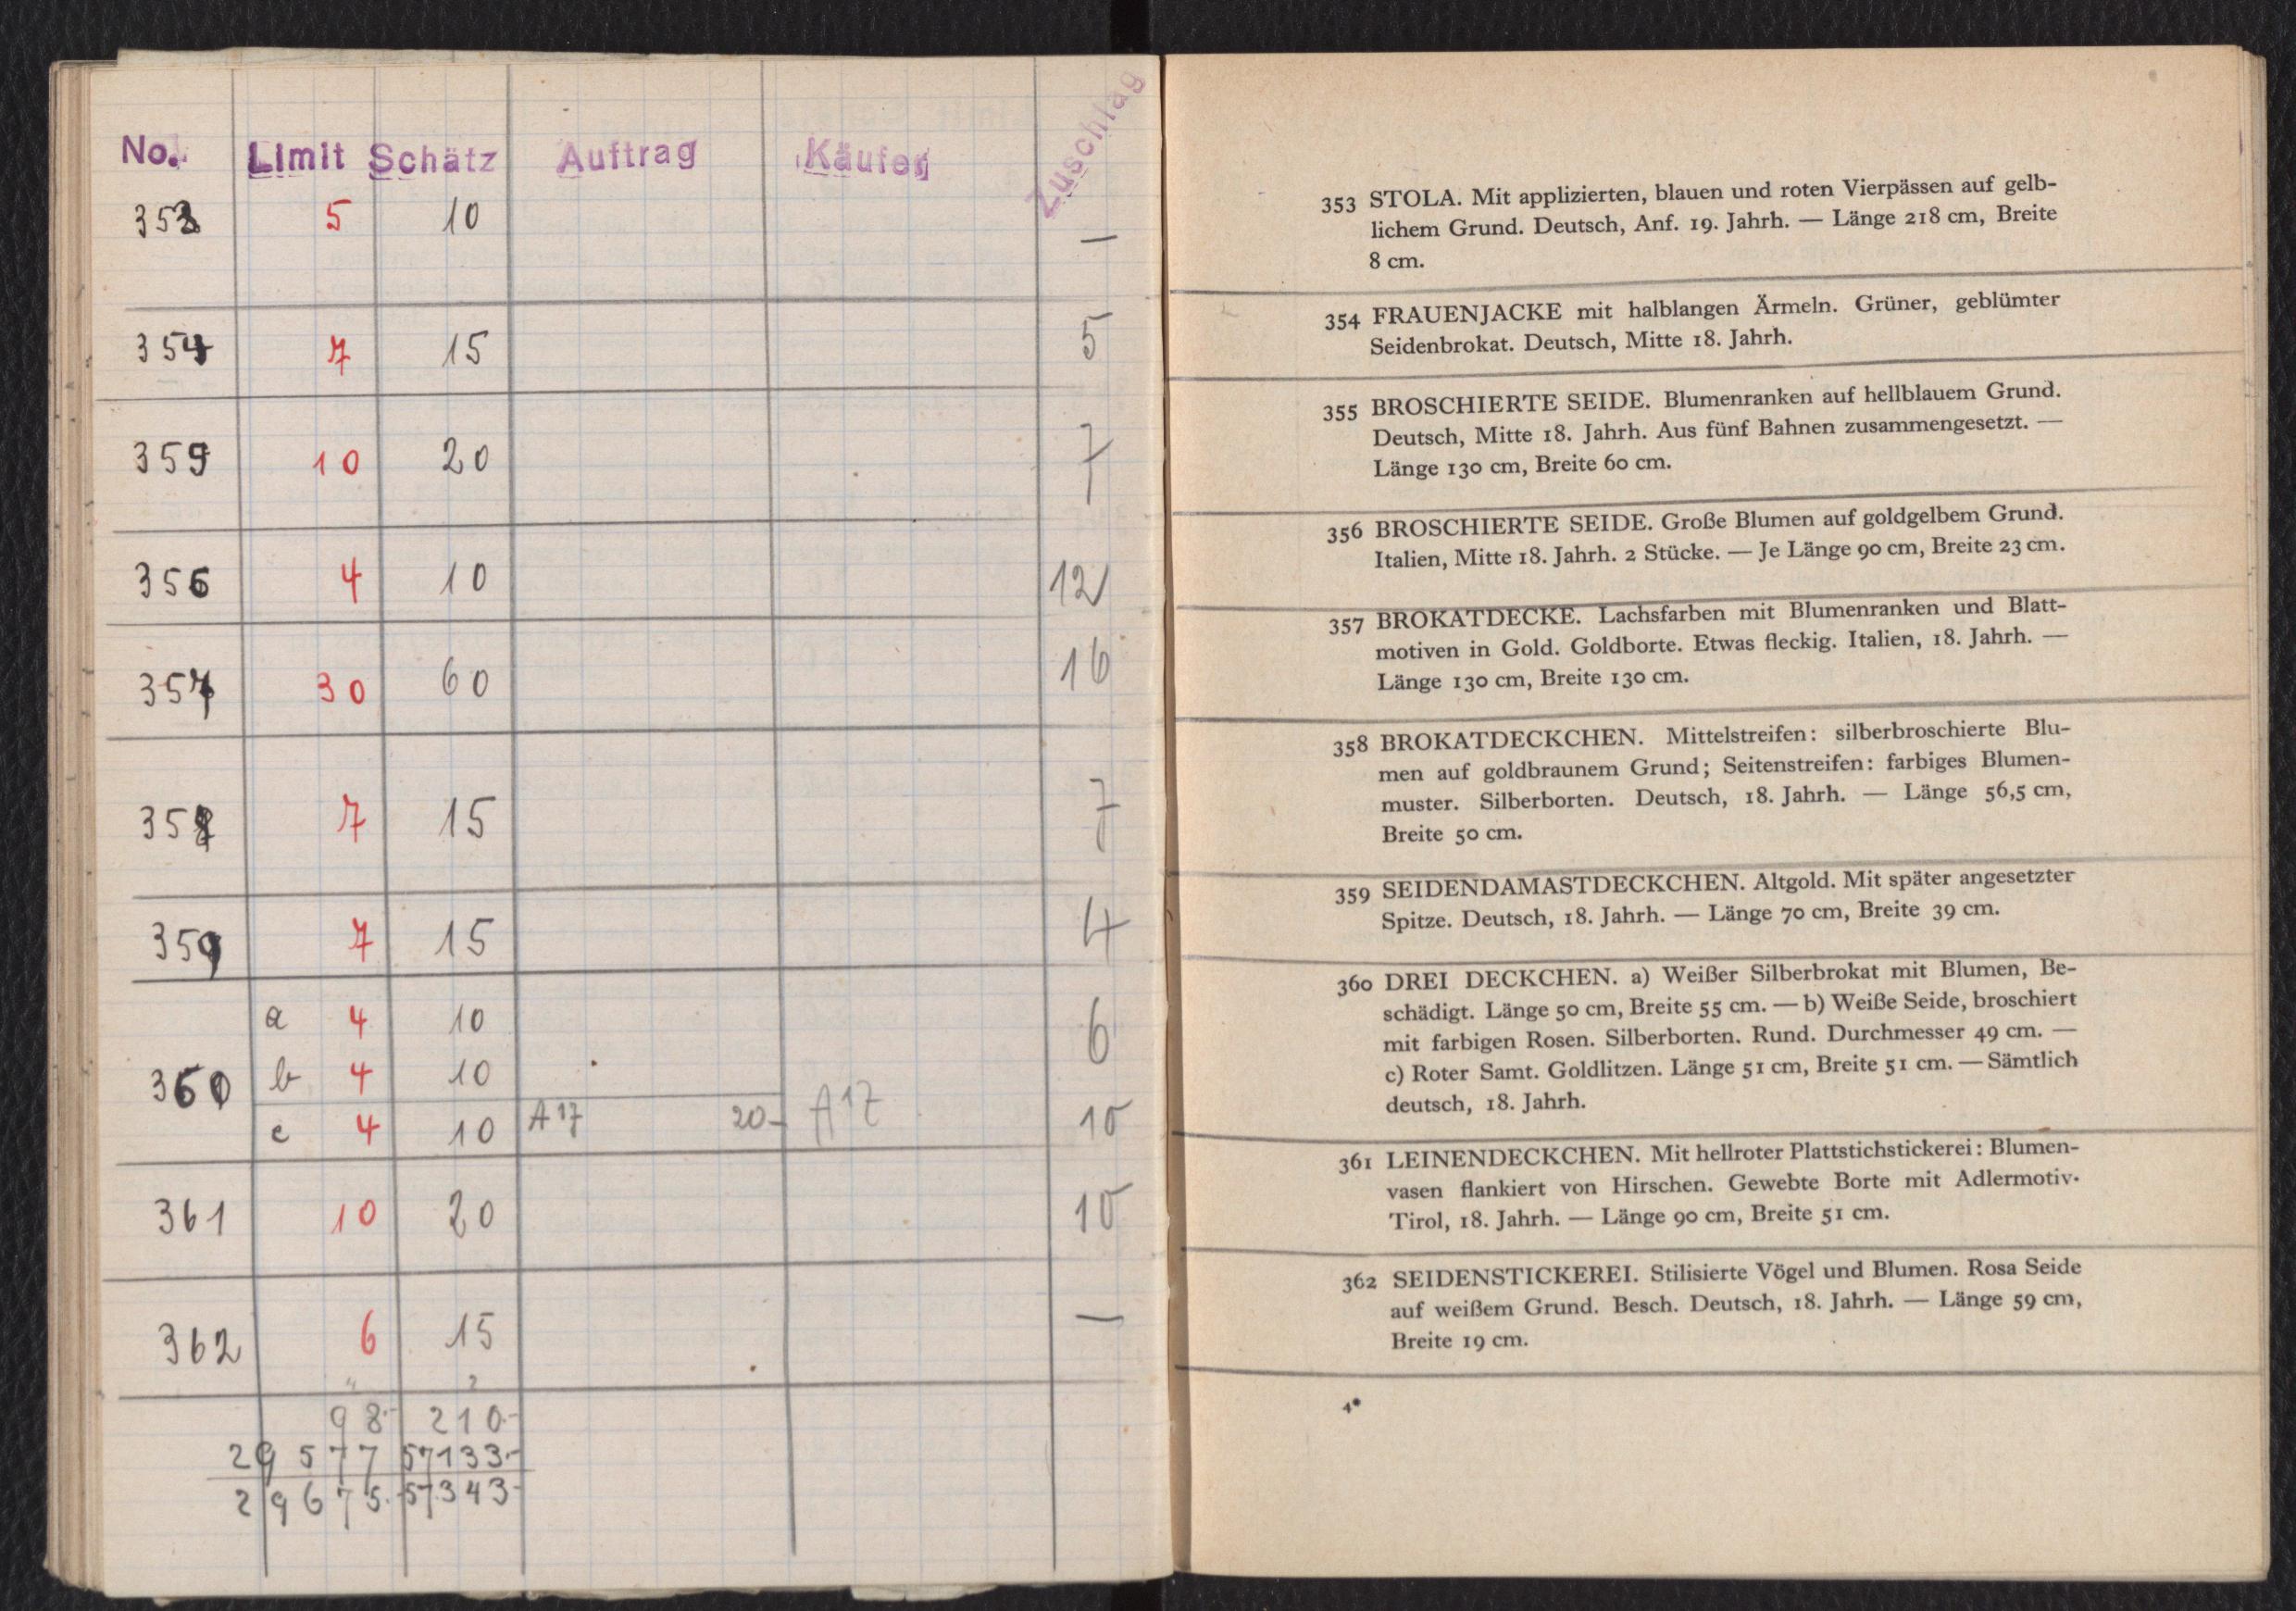 No. Limit Schätz Auftrag Käufer Zuschlag
353 5 10 —
354 7 15 5
355 10 20 7
356 4 10 12
357 30 60 16
358 7 15 7
359 7 15 4
a 4 10 6
360 b 4 10
c 4 10 A 17 20- A 17 10
361 10 20 10
362 6 15 —
98.- 210.-
29577 57133.-
29675.- 57343-
353 STOLA. Mit applizierten, blauen und roten Vierpässen auf gelb-
lichem Grund. Deutsch, Anf. 19. Jahrh. — Länge 218 cm, Breite
8 cm.
354 FRAUENJACKE mit halblangen Ärmeln. Grüner, geblümter
Seidenbrokat. Deutsch, Mitte 18. Jahrh.
355 BROSCHIERTE SEIDE. Blumenranken auf hellblauem Grund.
Deutsch, Mitte 18. Jahrh. Aus fünf Bahnen zusammengesetzt. —
Länge 130 cm, Breite 60 cm.
356 BROSCHIERTE SEIDE. Große Blumen auf goldgelbem Grund.
Italien, Mitte 18. Jahrh. 2 Stücke. — Je Länge 90 cm, Breite 23 cm.
357 BROKATDECKE. Lachsfarben mit Blumenranken und Blatt-
motiven in Gold. Goldborte. Etwas fleckig. Italien, 18. Jahrh. —
Länge 130 cm, Breite 130 cm.
358 BROKATDECKCHEN. Mittelstreifen: silberbroschierte Blu-
men auf goldbraunem Grund; Seitenstreifen: farbiges Blumen-
muster. Silberborten. Deutsch, 18. Jahrh. — Länge 56,5 cm,
Breite 50 cm.
359 SEIDENDAMASTDECKCHEN. Altgold. Mit später angesetzter
Spitze. Deutsch, 18. Jahrh. — Länge 70 cm, Breite 39 cm.
360 DREI DECKCHEN. a) Weißer Silberbrokat mit Blumen, Be-
schädigt. Länge 50 cm, Breite 55 cm. — b) Weiße Seide, broschiert
mit farbigen Rosen. Silberborten. Rund. Durchmesser 49 cm. —
c) Roter Samt. Goldlitzen. Länge 51 cm, Breite 51 cm. — Sämtlich
deutsch, 18. Jahrh.
361 LEINENDECKCHEN. Mit hellroter Plattstichstickerei: Blumen-
vasen flankiert von Hirschen. Gewebte Borte mit Adlermotiv.
Tirol, 18. Jahrh. — Länge 90 cm, Breite 51 cm.
362 SEIDENSTICKEREI. Stilisierte Vögel und Blumen. Rosa Seide
auf weißem Grund. Besch. Deutsch, 18. Jahrh. — Länge 59 cm,
Breite 19 cm.
4*